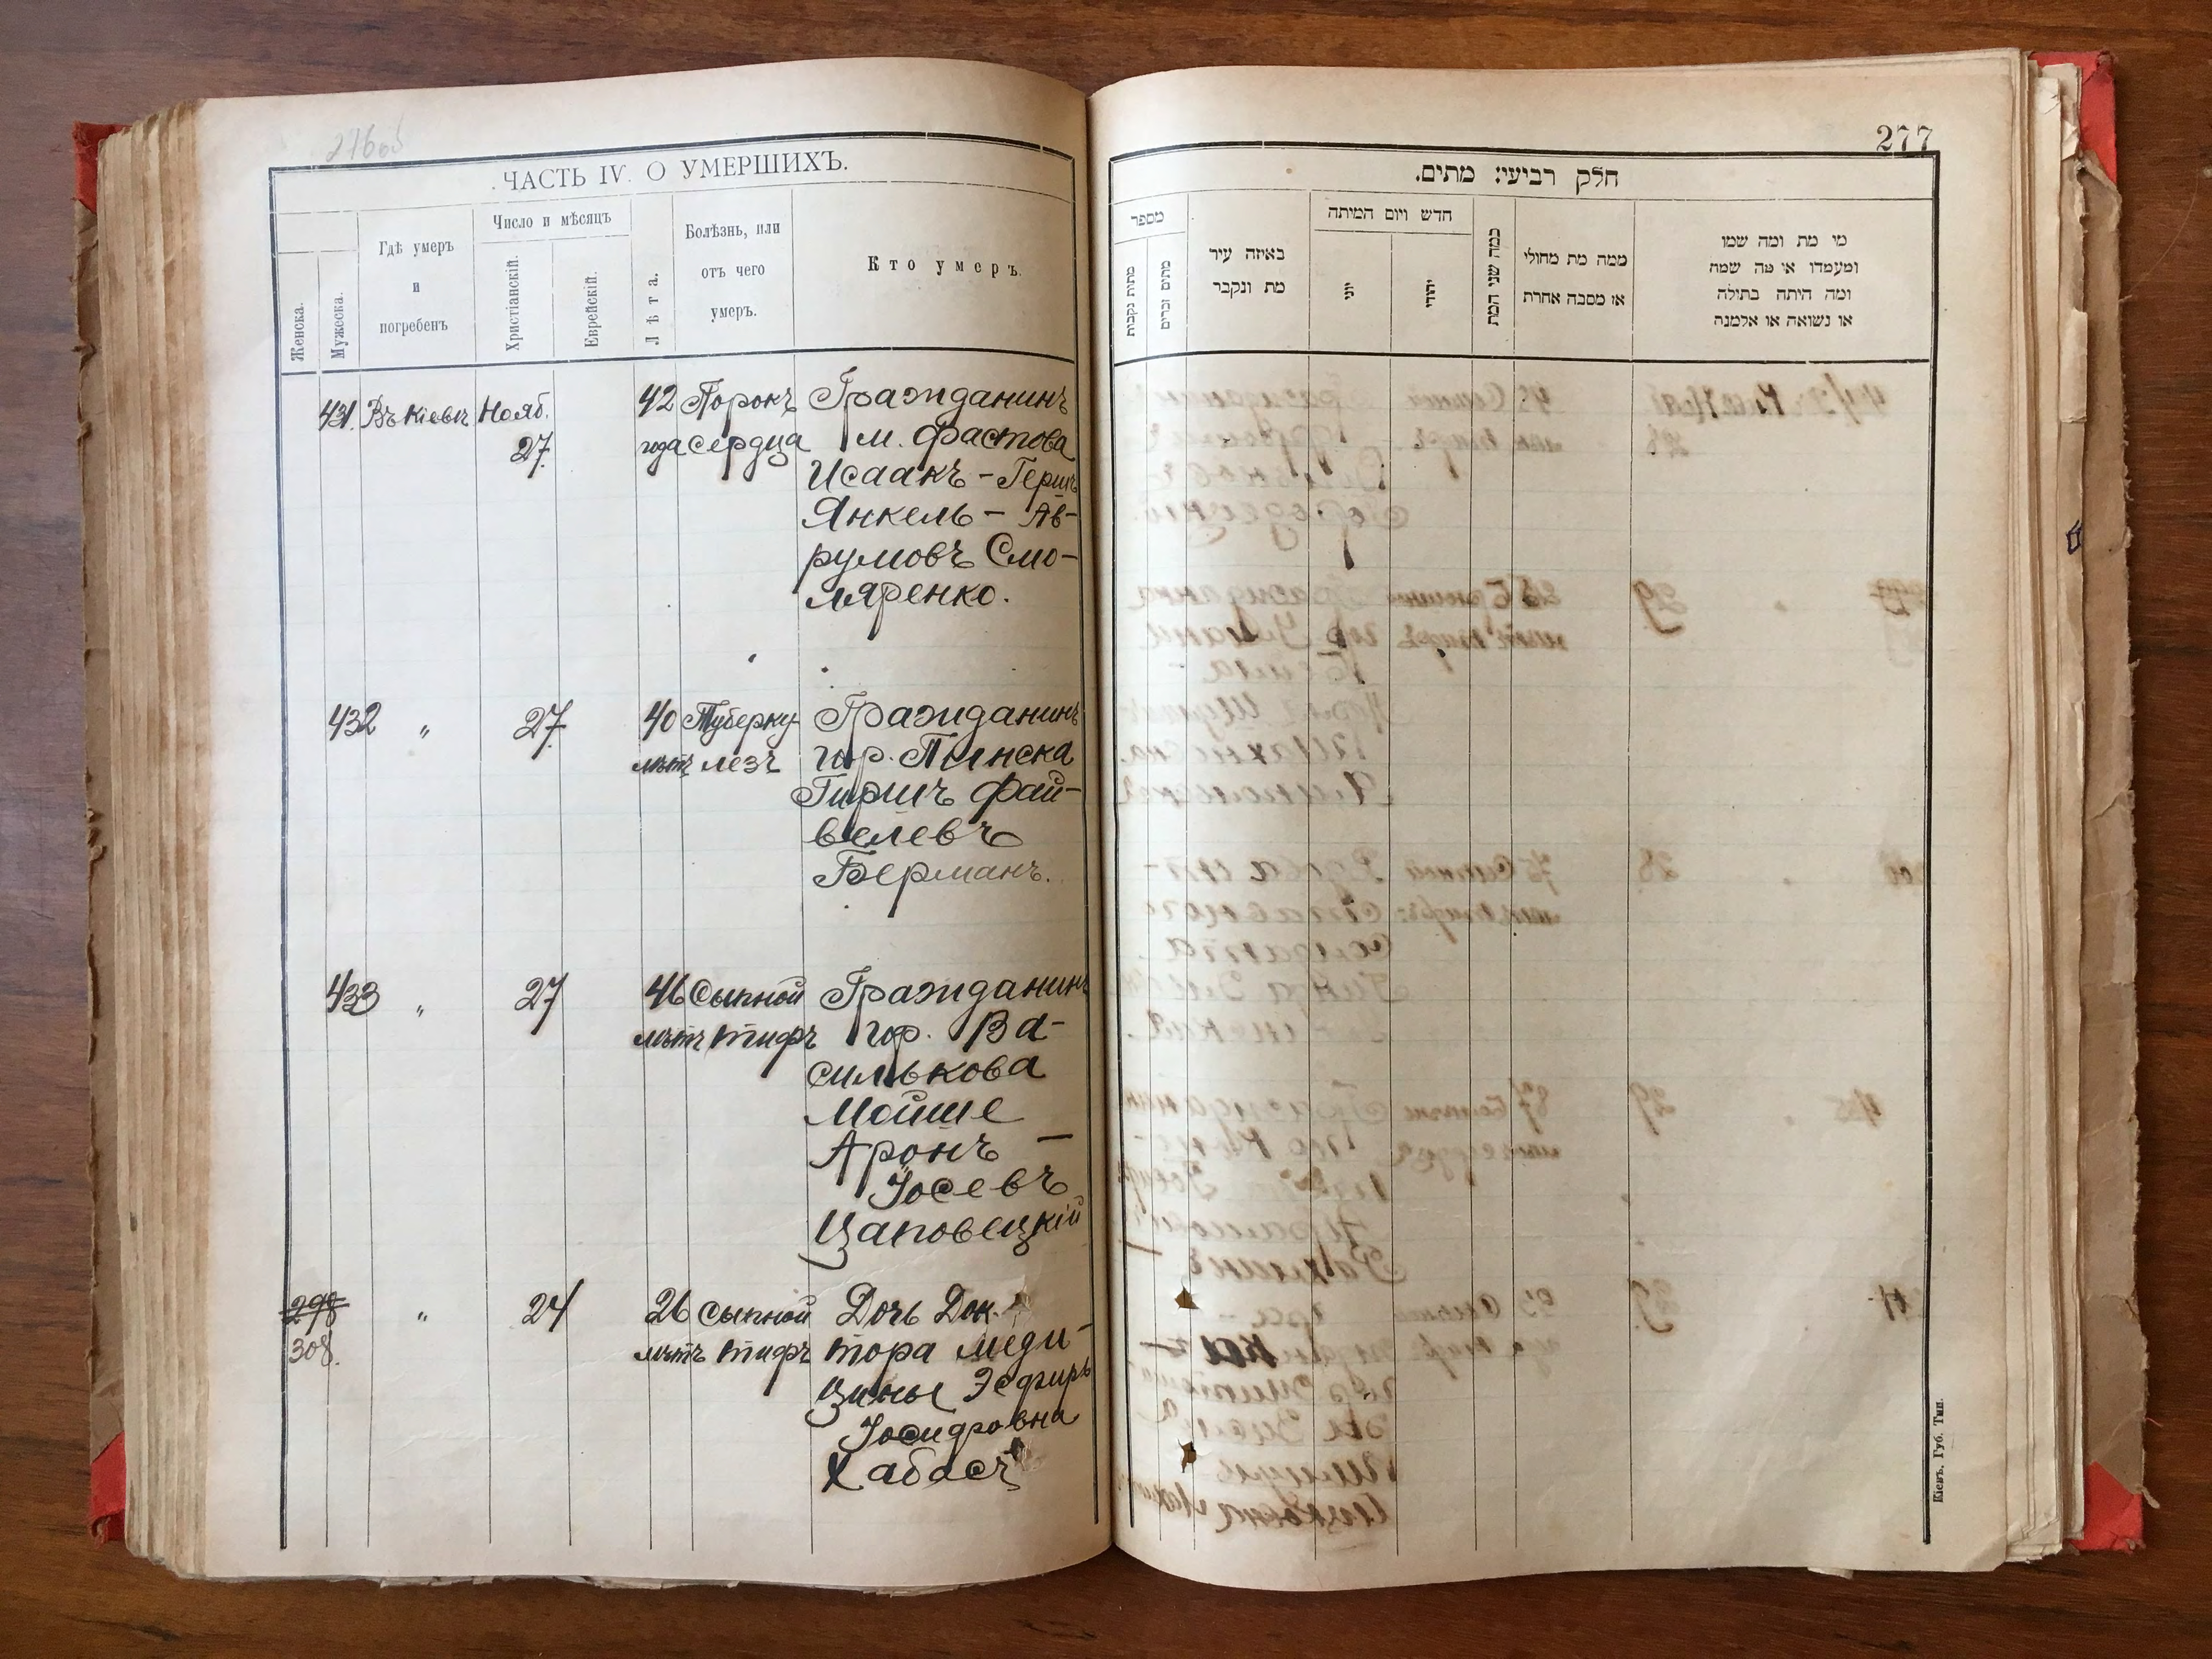 276об
ЧАСТЬ IV. О УМЕРШИХЪ.
Женска.
Мужеска.
Гдѣ умеръ
и
погребенъ
Число и мѣсяцъ
Христіанскій.
Еврейскій.
Лѣта.
Болѣзнь, или
отъ чего
умеръ.
Кто умеръ.
431. Въ Кіевѣ Нояб. 42 Порокъ Гражданинъ
27 года сердца м. Фастова
Исаакъ - Гершъ
Янкель - Ав-
румовъ Смо-
ляренко.
432 " 27 40 Туберку Гражданинъ
лѣтъ лезъ гор. Пинска
Гиршъ Фай-
велевъ
Берманъ.
433 " 27 46 Сыпной Гражданинъ
лѣтъ тифъ гор. Ва-
силькова
Мойше
Аронъ -
Іосевъ
Цаповецкій
298 " 24 26 Сыпной Дочь Док-
308. лѣтъ тифъ тора меди-
цины Эсфирь
Іосифовна
Хабасъ
277
חלק רביעי: מתים.
מספר
מתות נקבות
מתים זכרים
באיזה עיר
מת ונקבר
חדש ויום המיתה
יוני
יהודי
כמה שני המת
ממה מת מחולי
או מסבה אחרת
מי מת ומה שמו
ומעמדו או מה שמה
ומה היתה בתולה
או נשואה או אלמנה
Кіевъ. Губ. Тип.